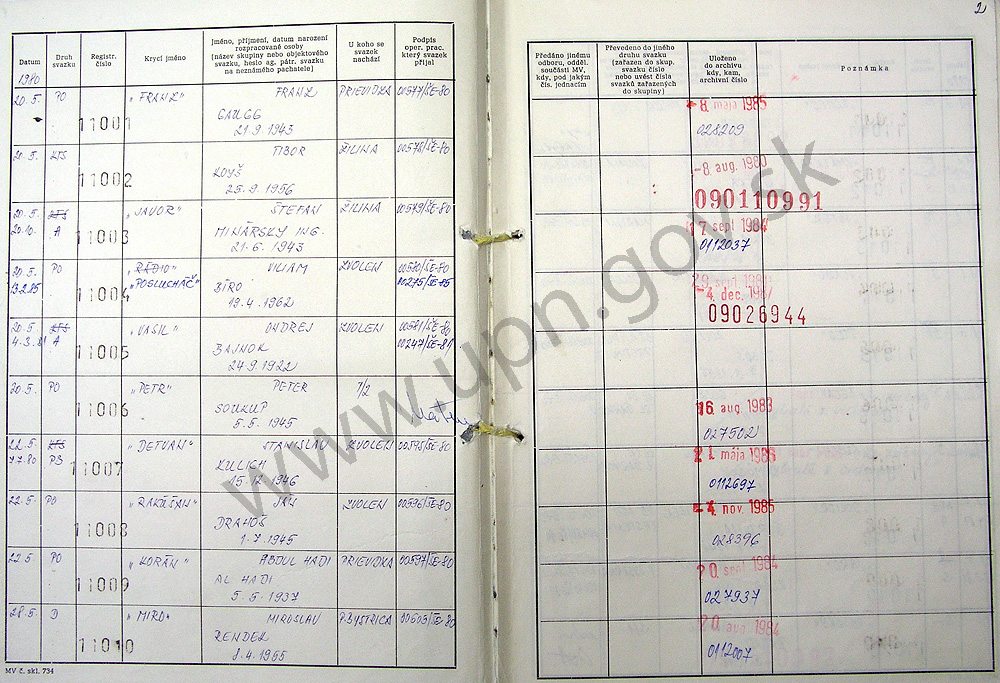 2
Datum
Druh svazku
Registr. číslo
Krycí jméno
Jméno, příjmení, datum narození rozpracované osoby (název skupiny nebo objektového svazku, heslo ag. pátr. svazku na neznámého pachatele)
U koho se svazek nachází
Podpis oper. prac. který svazek přijal
Předáno jinému odboru, odděl. součásti MV, kdy, pod jakým čís. jednacím
Převedeno do jiného druhu svazku (zařazen do skup. svazku číslo nebo uvést čísla svazků zařazených do skupiny)
Uloženo do archivu kdy, kam, archivní číslo
Poznámka
1980
20.5. PO 11001 „FRANZ" FRANZ PRIEVIDZA 00577/ŠE-80
GAUGG
21.9.1943
8. mája 1985
028209
20.5. KTS 11002 TIBOR ŽILINA 00578/ŠE-80
25.9.1956
-8. aug. 1980
090110991
20.5. KTS 11003 „JAVOR" ŠTEFAN ŽILINA 00579/ŠE-80
20.10. A MINÁRSKY ING.
21.6.1943
17. sept. 1984
0112037
20.5. PO 11004 „RÁDIO" VILIAM ZVOLEN 00580/ŠE-80
13.2.85 „POSLUCHÁČ" BÍRO 00275/ŠE-85
19.4.1962
-4. dec. 1987
09026944
20.5. KTS 11005 „VASIL" ONDREJ ZVOLEN 00581/ŠE-80
4.3.81 A BAJNOK 00247/ŠE-81
24.9.1922
20.5. PO 11006 „PETR" PETER 7/2
SOUKUP
5.5.1945
16. aug. 1983
027502
22.5. KTS 11007 „DETVAN" STANISLAV ZVOLEN 00595/ŠE-80
7.7.80 PS KULICH
15.12.1946
21. mája 1986
0112697
22.5. PO 11008 „RAKÚŠAN" JÁN ZVOLEN 00596/ŠE-80
DRAHOŠ
1.7.1945
-4. nov. 1985
028396
22.5. PO 11009 „KORÁN" ABDUL HADI PRIEVIDZA 00597/ŠE-80
AL HADI
5.5.1937
20. sept. 1984
027937
28.5. D 11010 „MIRO" MIROSLAV P.BYSTRICA 00603/ŠE-80
RENDEK
8.4.1955
20. aug. 1984
0112007
MV č. skl. 734
www.upn.gov.sk